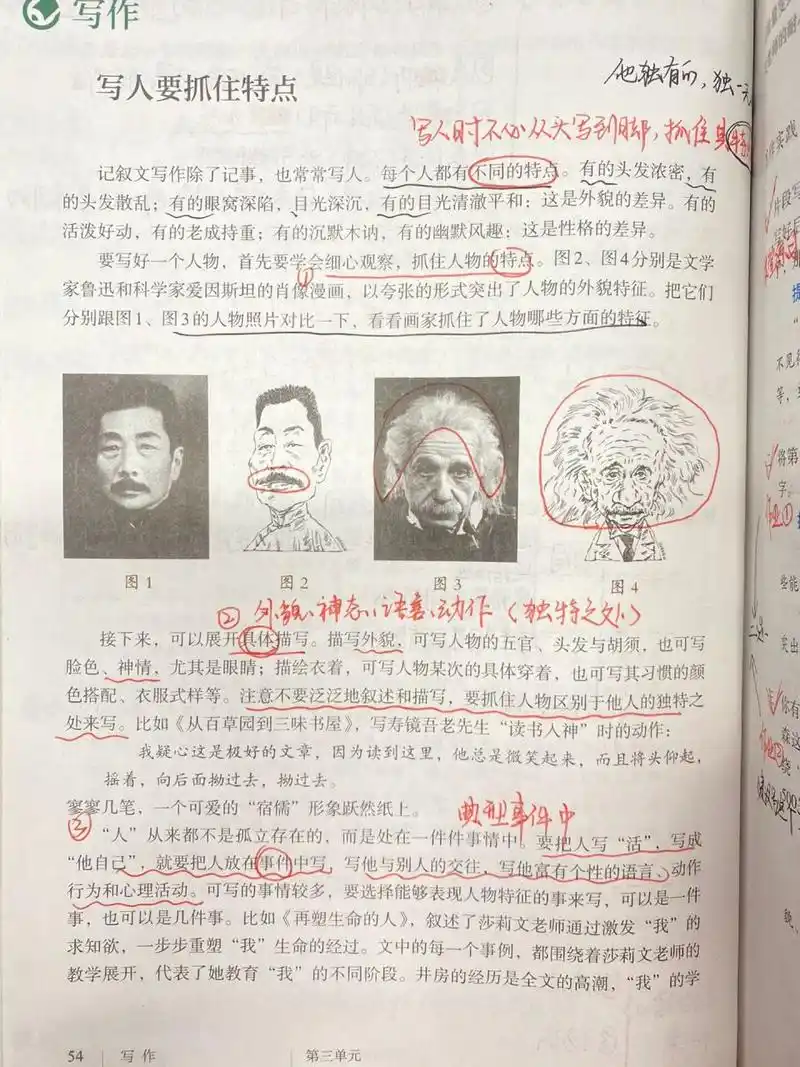 写作
写人要抓住特点
他独有的，独一无
写人时不必从头写到脚，抓住其特点
记叙文写作除了记事，也常常写人。每个人都有不同的特点。有的头发浓密，有
的头发散乱；有的眼窝深陷，目光深沉，有的目光清澈平和：这是外貌的差异。有的
活泼好动，有的老成持重；有的沉默木讷，有的幽默风趣：这是性格的差异。
要写好一个人物，首先要学会细心观察，抓住人物的特点。图2、图4分别是文学
①
家鲁迅和科学家爱因斯坦的肖像漫画，以夸张的形式突出了人物的外貌特征。把它们
分别跟图1、图3的人物照片对比一下，看看画家抓住了人物哪些方面的特征。
图1
图2
图3
图4
② 外貌、神态、语言、动作（独特之处）
接下来，可以展开具体描写。描写外貌，可写人物的五官、头发与胡须，也可写
脸色、神情，尤其是眼睛；描绘衣着，可写人物某次的具体穿着，也可写其习惯的颜
色搭配、衣服式样等。注意不要泛泛地叙述和描写，要抓住人物区别于他人的独特之
处来写。比如《从百草园到三味书屋》，写寿镜吾老先生“读书入神”时的动作：
我疑心这是极好的文章，因为读到这里，他总是微笑起来，而且将头仰起，
摇着，向后面拗过去，拗过去。
寥寥几笔，一个可爱的“宿儒”形象跃然纸上。
典型事件中
③
“人”从来都不是孤立存在的，而是处在一件件事情中。要把人写“活”，写成
“他自己”，就要把人放在事件中写，写他与别人的交往，写他富有个性的语言、动作
行为和心理活动。可写的事情较多，要选择能够表现人物特征的事来写，可以是一件
事，也可以是几件事。比如《再塑生命的人》，叙述了莎莉文老师通过激发“我”的
求知欲，一步步重塑“我”生命的经过。文中的每一个事例，都围绕着莎莉文老师的
教学展开，代表了她教育“我”的不同阶段。井房的经历是全文的高潮，“我”的学
54 写作 第三单元
作实践
片段写
提
不见得
等，
将第
字。
些能
突出
你有
森这
绕，